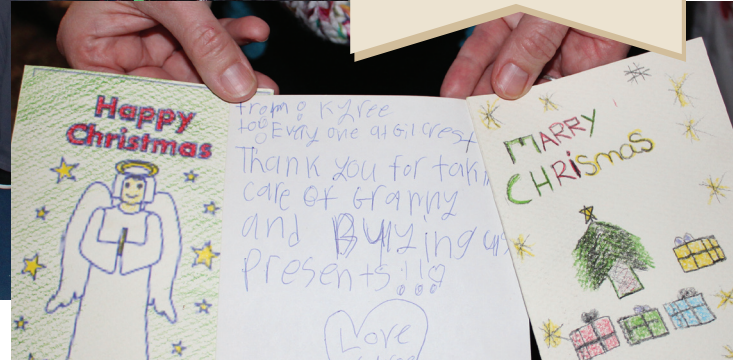 Happy
Christmas
From: Kyree
to: Every one at Gilcrest
Thank you for takin
care of Granny
and Buying us
presents!!!
Love
MARRY
CHRismas